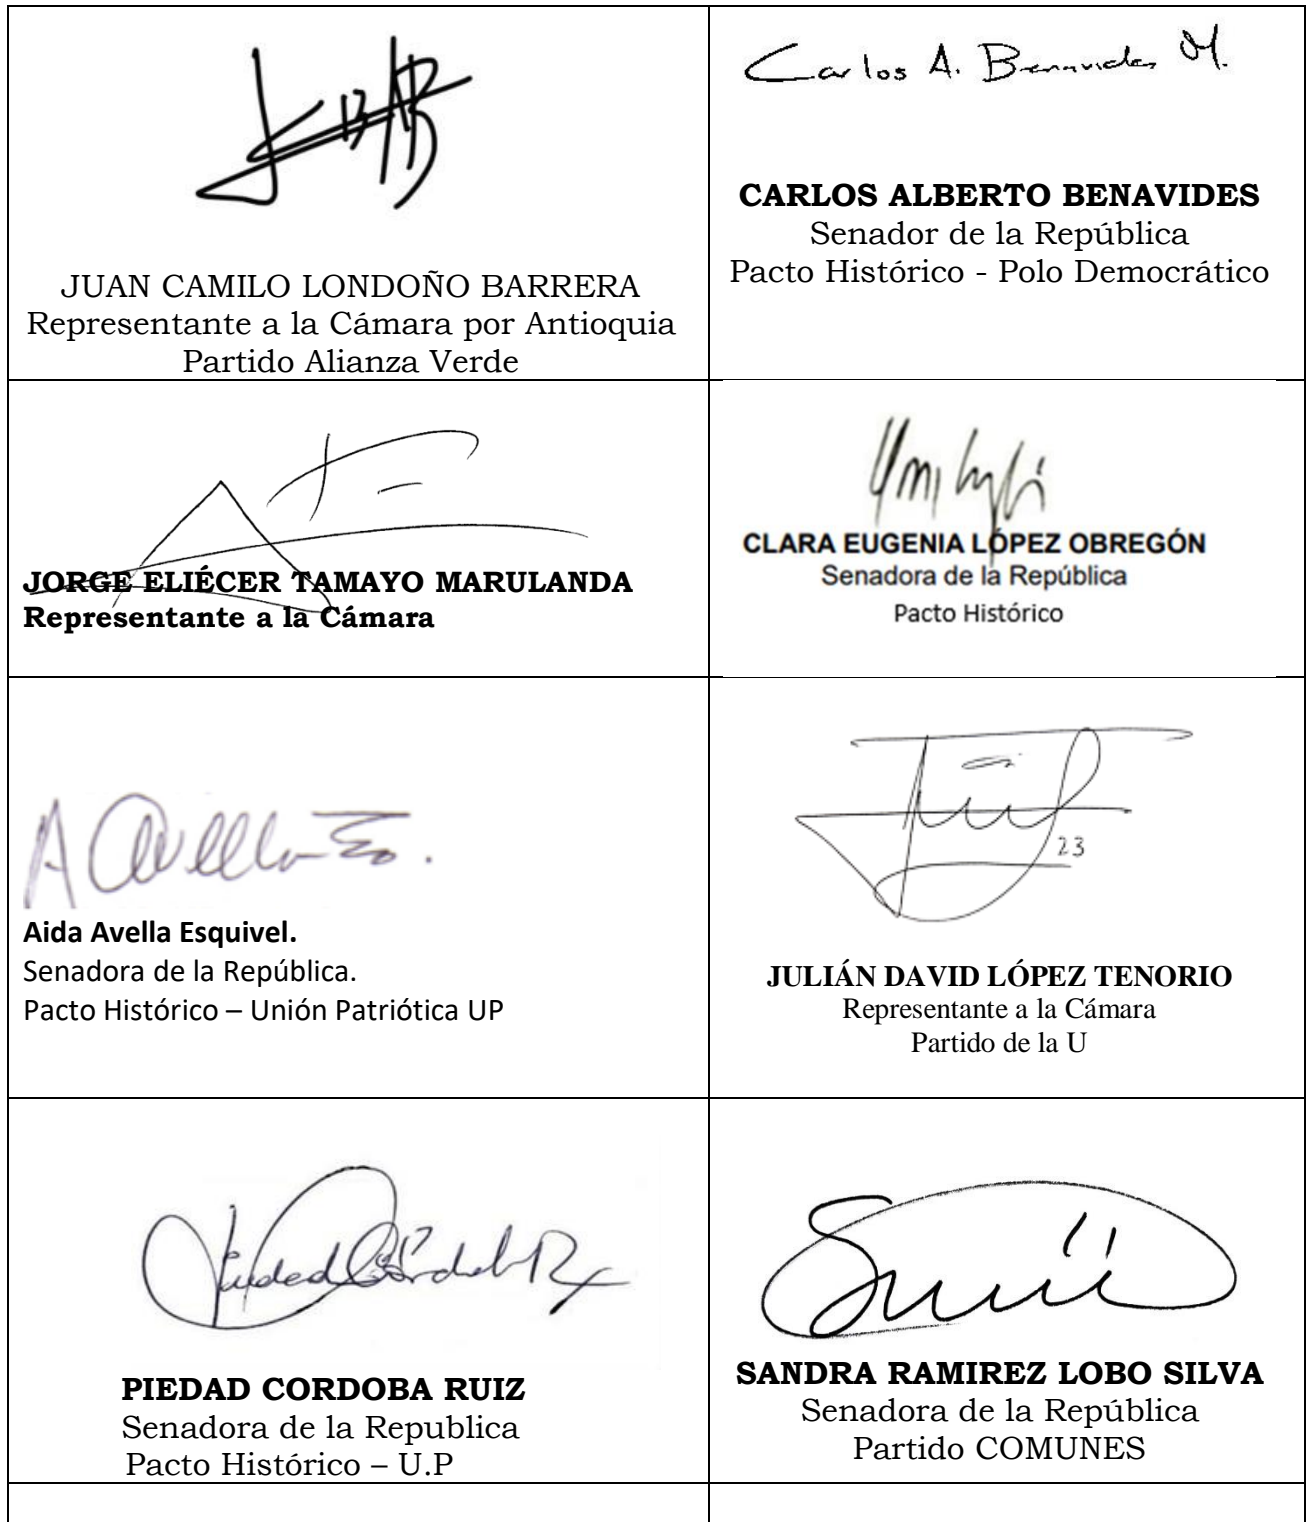 JUAN CAMILO LONDOÑO BARRERA
Representante a la Cámara por Antioquia
Partido Alianza Verde
Carlos A. Benavides M.
CARLOS ALBERTO BENAVIDES
Senador de la República
Pacto Histórico - Polo Democrático
JORGE ELIÉCER TAMAYO MARULANDA
Representante a la Cámara
CLARA EUGENIA LÓPEZ OBREGÓN
Senadora de la República
Pacto Histórico
A Avella
Aida Avella Esquivel.
Senadora de la República.
Pacto Histórico – Unión Patriótica UP
23
JULIÁN DAVID LÓPEZ TENORIO
Representante a la Cámara
Partido de la U
Piedad Córdoba R
PIEDAD CORDOBA RUIZ
Senadora de la Republica
Pacto Histórico – U.P
SANDRA RAMIREZ LOBO SILVA
Senadora de la República
Partido COMUNES